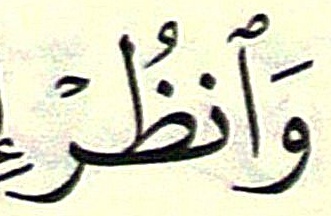 وَٱنظُرْ